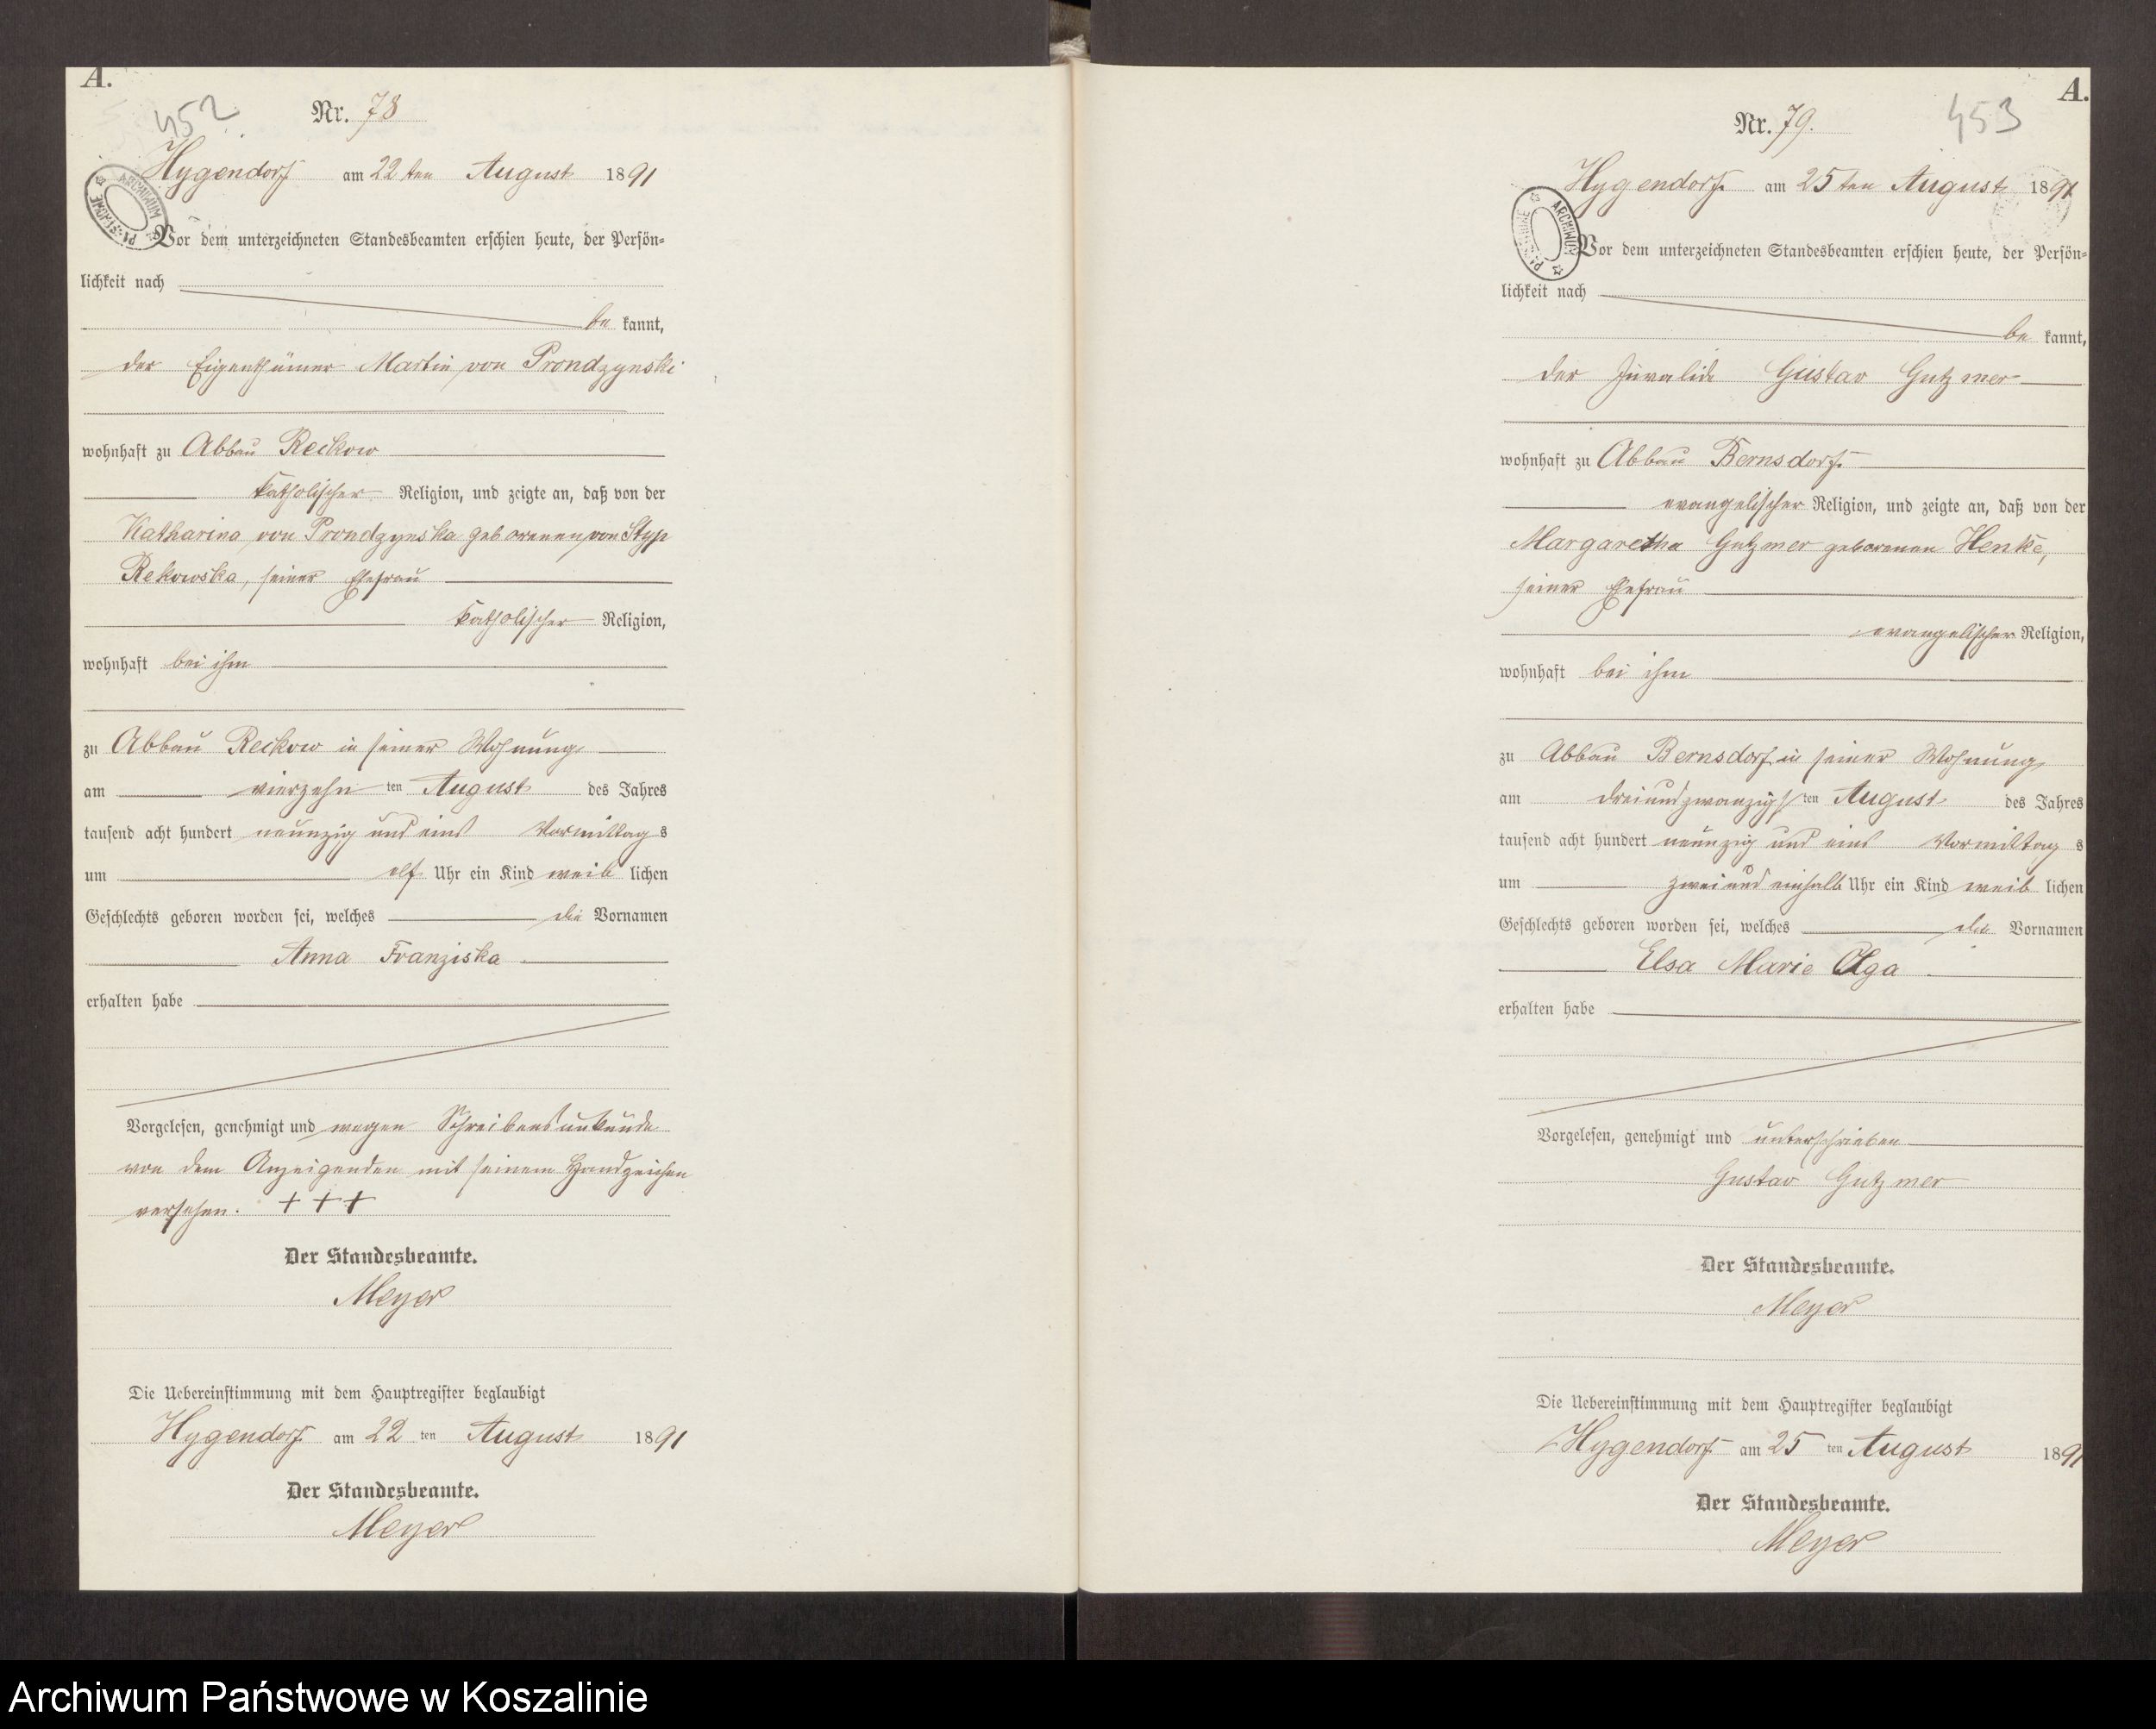 A.
452
Nr. 78
Hygendorf am 22ten August 1891
ARCHIWUM
Vor dem unterzeichneten Standesbeamten erschien heute, der Persön-
lichkeit nach
be kannt,
der Eigenthümer Martin von Prondzynski
wohnhaft zu Abbau Reckow
katholischer Religion, und zeigte an, daß von der
Katharina von Prondzynska geborenen von Styp
Rekowska, seiner Ehefrau
katholischer Religion,
wohnhaft bei ihm
zu Abbau Reckow in seiner Wohnung
am vierzehn ten August des Jahres
tausend acht hundert neunzig und eins Vormittag s
um elf Uhr ein Kind weib lichen
Geschlechts geboren worden sei, welches die Vornamen
Anna Franziska
erhalten habe
Vorgelesen, genehmigt und wegen Schreibensunkunde
von dem Anzeigenden mit seinem Handzeichen
versehen. + + +
Der Standesbeamte.
Meyer
Die Uebereinstimmung mit dem Hauptregister beglaubigt
Hygendorf am 22 ten August 1891
Der Standesbeamte.
Meyer
A.
453
Nr. 79.
Hygendorf am 25ten August 1891
ARCHIWUM
Vor dem unterzeichneten Standesbeamten erschien heute, der Persön-
lichkeit nach
be kannt,
der Invalide Gustav Gutzmer
wohnhaft zu Abbau Bernsdorf
evangelischer Religion, und zeigte an, daß von der
Margaretha Gutzmer geborenen Henke,
seiner Ehefrau
evangelischer Religion,
wohnhaft bei ihm
zu Abbau Bernsdorf in seiner Wohnung
am dreiundzwanzigst ten August des Jahres
tausend acht hundert neunzig und eins Vormittag s
um zwei und einhalb Uhr ein Kind weib lichen
Geschlechts geboren worden sei, welches die Vornamen
Elsa Marie Olga
erhalten habe
Vorgelesen, genehmigt und unterschrieben
Gustav Gutzmer
Der Standesbeamte.
Meyer
Die Uebereinstimmung mit dem Hauptregister beglaubigt
Hygendorf am 25 ten August 1891
Der Standesbeamte.
Meyer
Archiwum Państwowe w Koszalinie